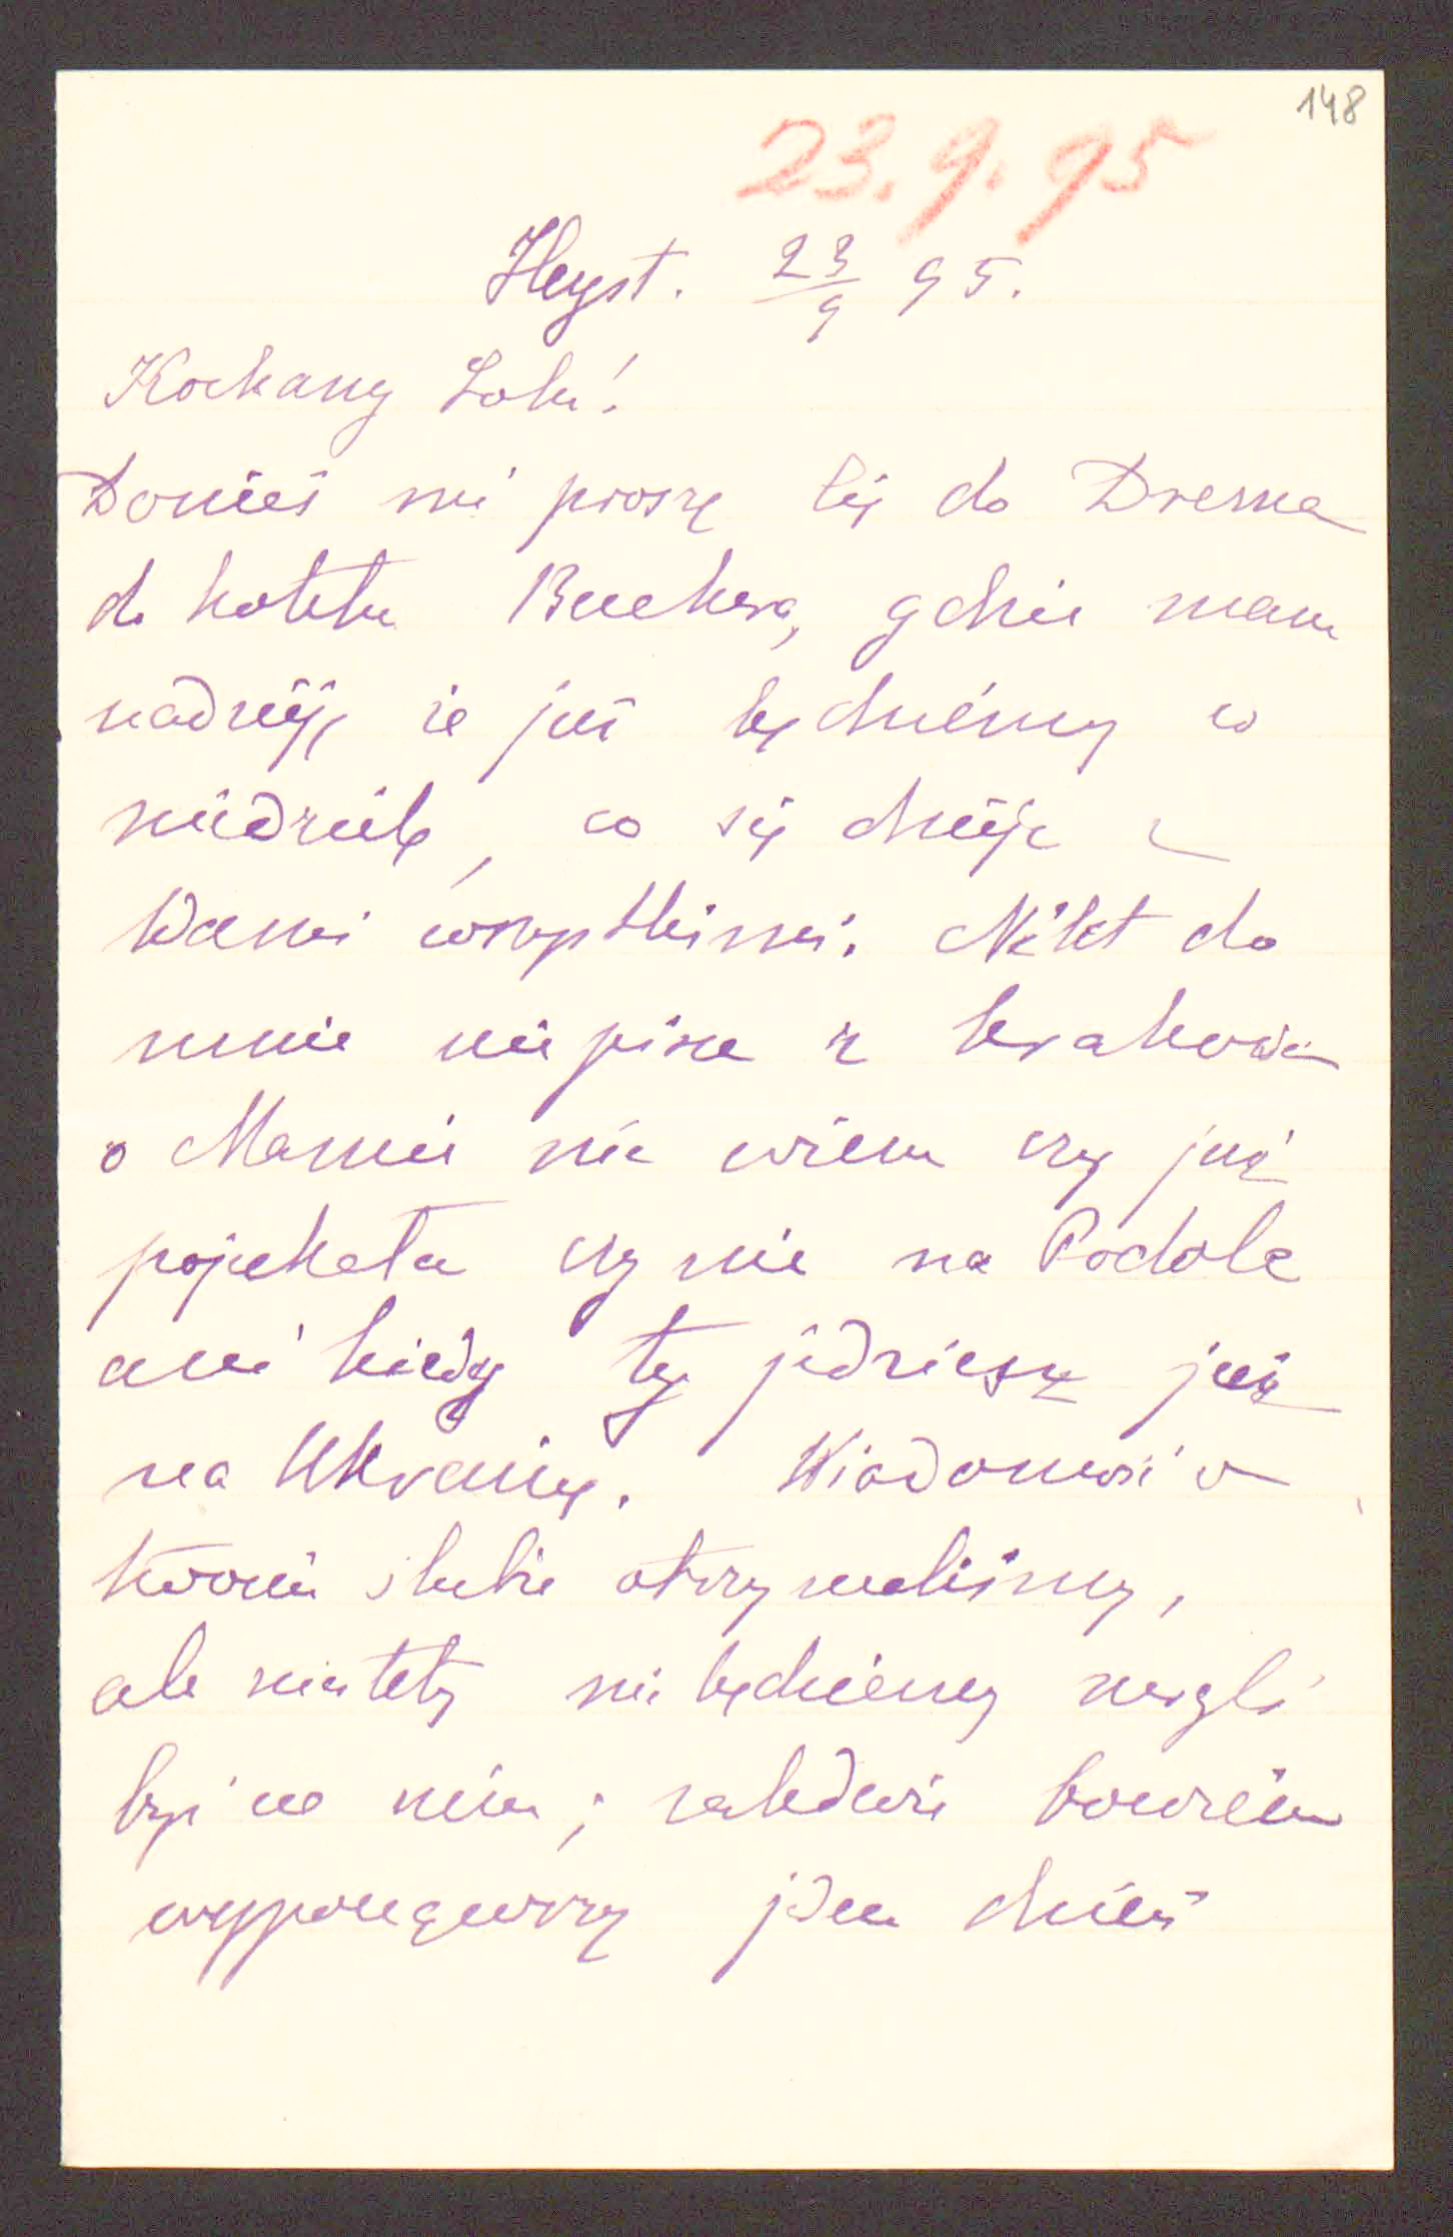 148
23.9.95
Heyst. 23/9 95.
Kochany Lolu!
Donieś mi proszę Cię do Drezna
do hotelu Buckera, gdzie mam
nadzieję że już będziemy w
niedzielę, co się dzieje z
Wami wszystkimi. Nikt do
mnie nie pisze z Krakowa
o Mamie nie wiem czy już
pojechała czy nie na Podole
ani kiedy ty jedziesz już
na Ukrainę. Wiadomość o
twoim ślubie otrzymaliśmy,
ale niestety nie będziemy mogli
być na nim; zaledwie bowiem
wypocząwszy jeden dzień